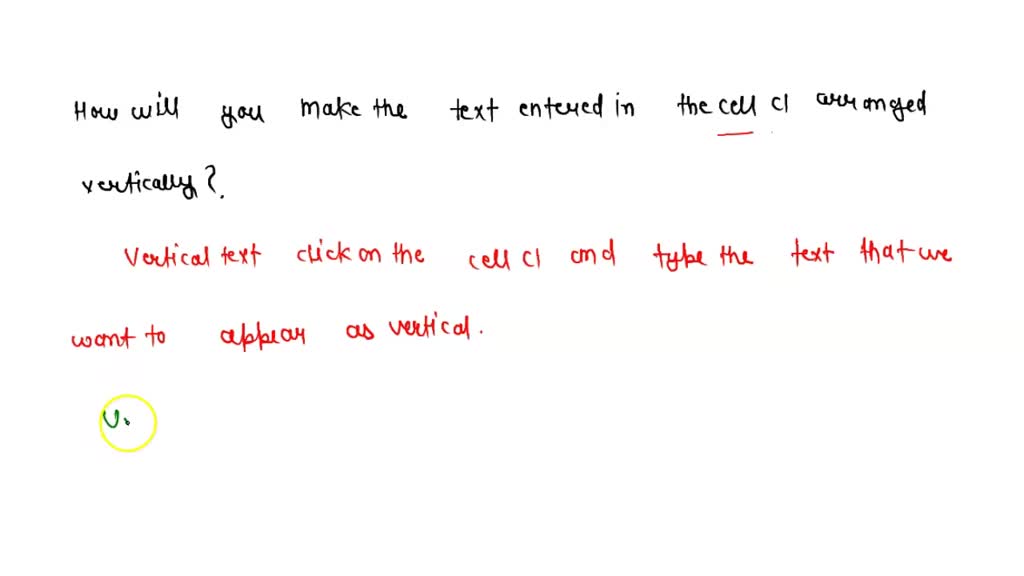 How will you make the text entered in the cell C1 arranged
vertically?
Vertical text click on the cell C1 and type the text that we
want to appear as vertical.